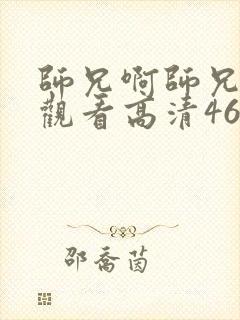 師兄啊師兄
觀看高清46
邵喬茵